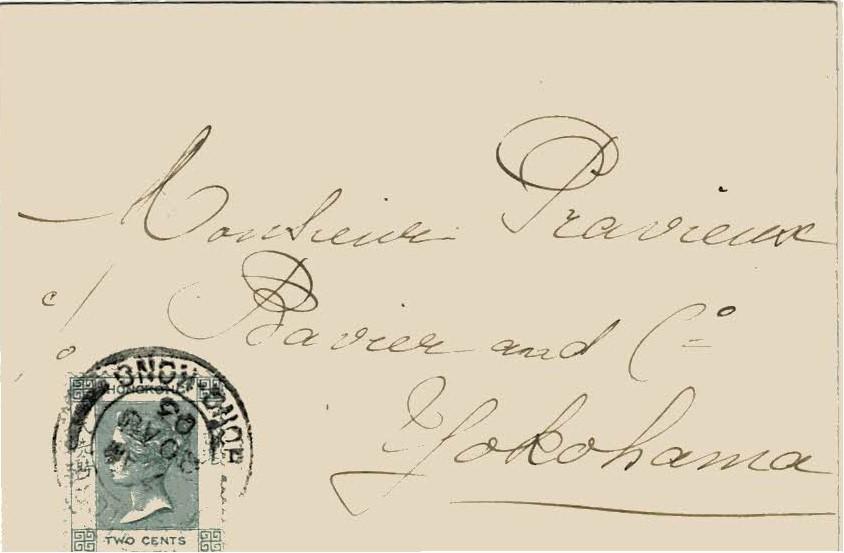 Monsieur Pravieux
c/o Bavier and Cº
Yokohama
HONG-KONG
HONGKONG
TWO CENTS